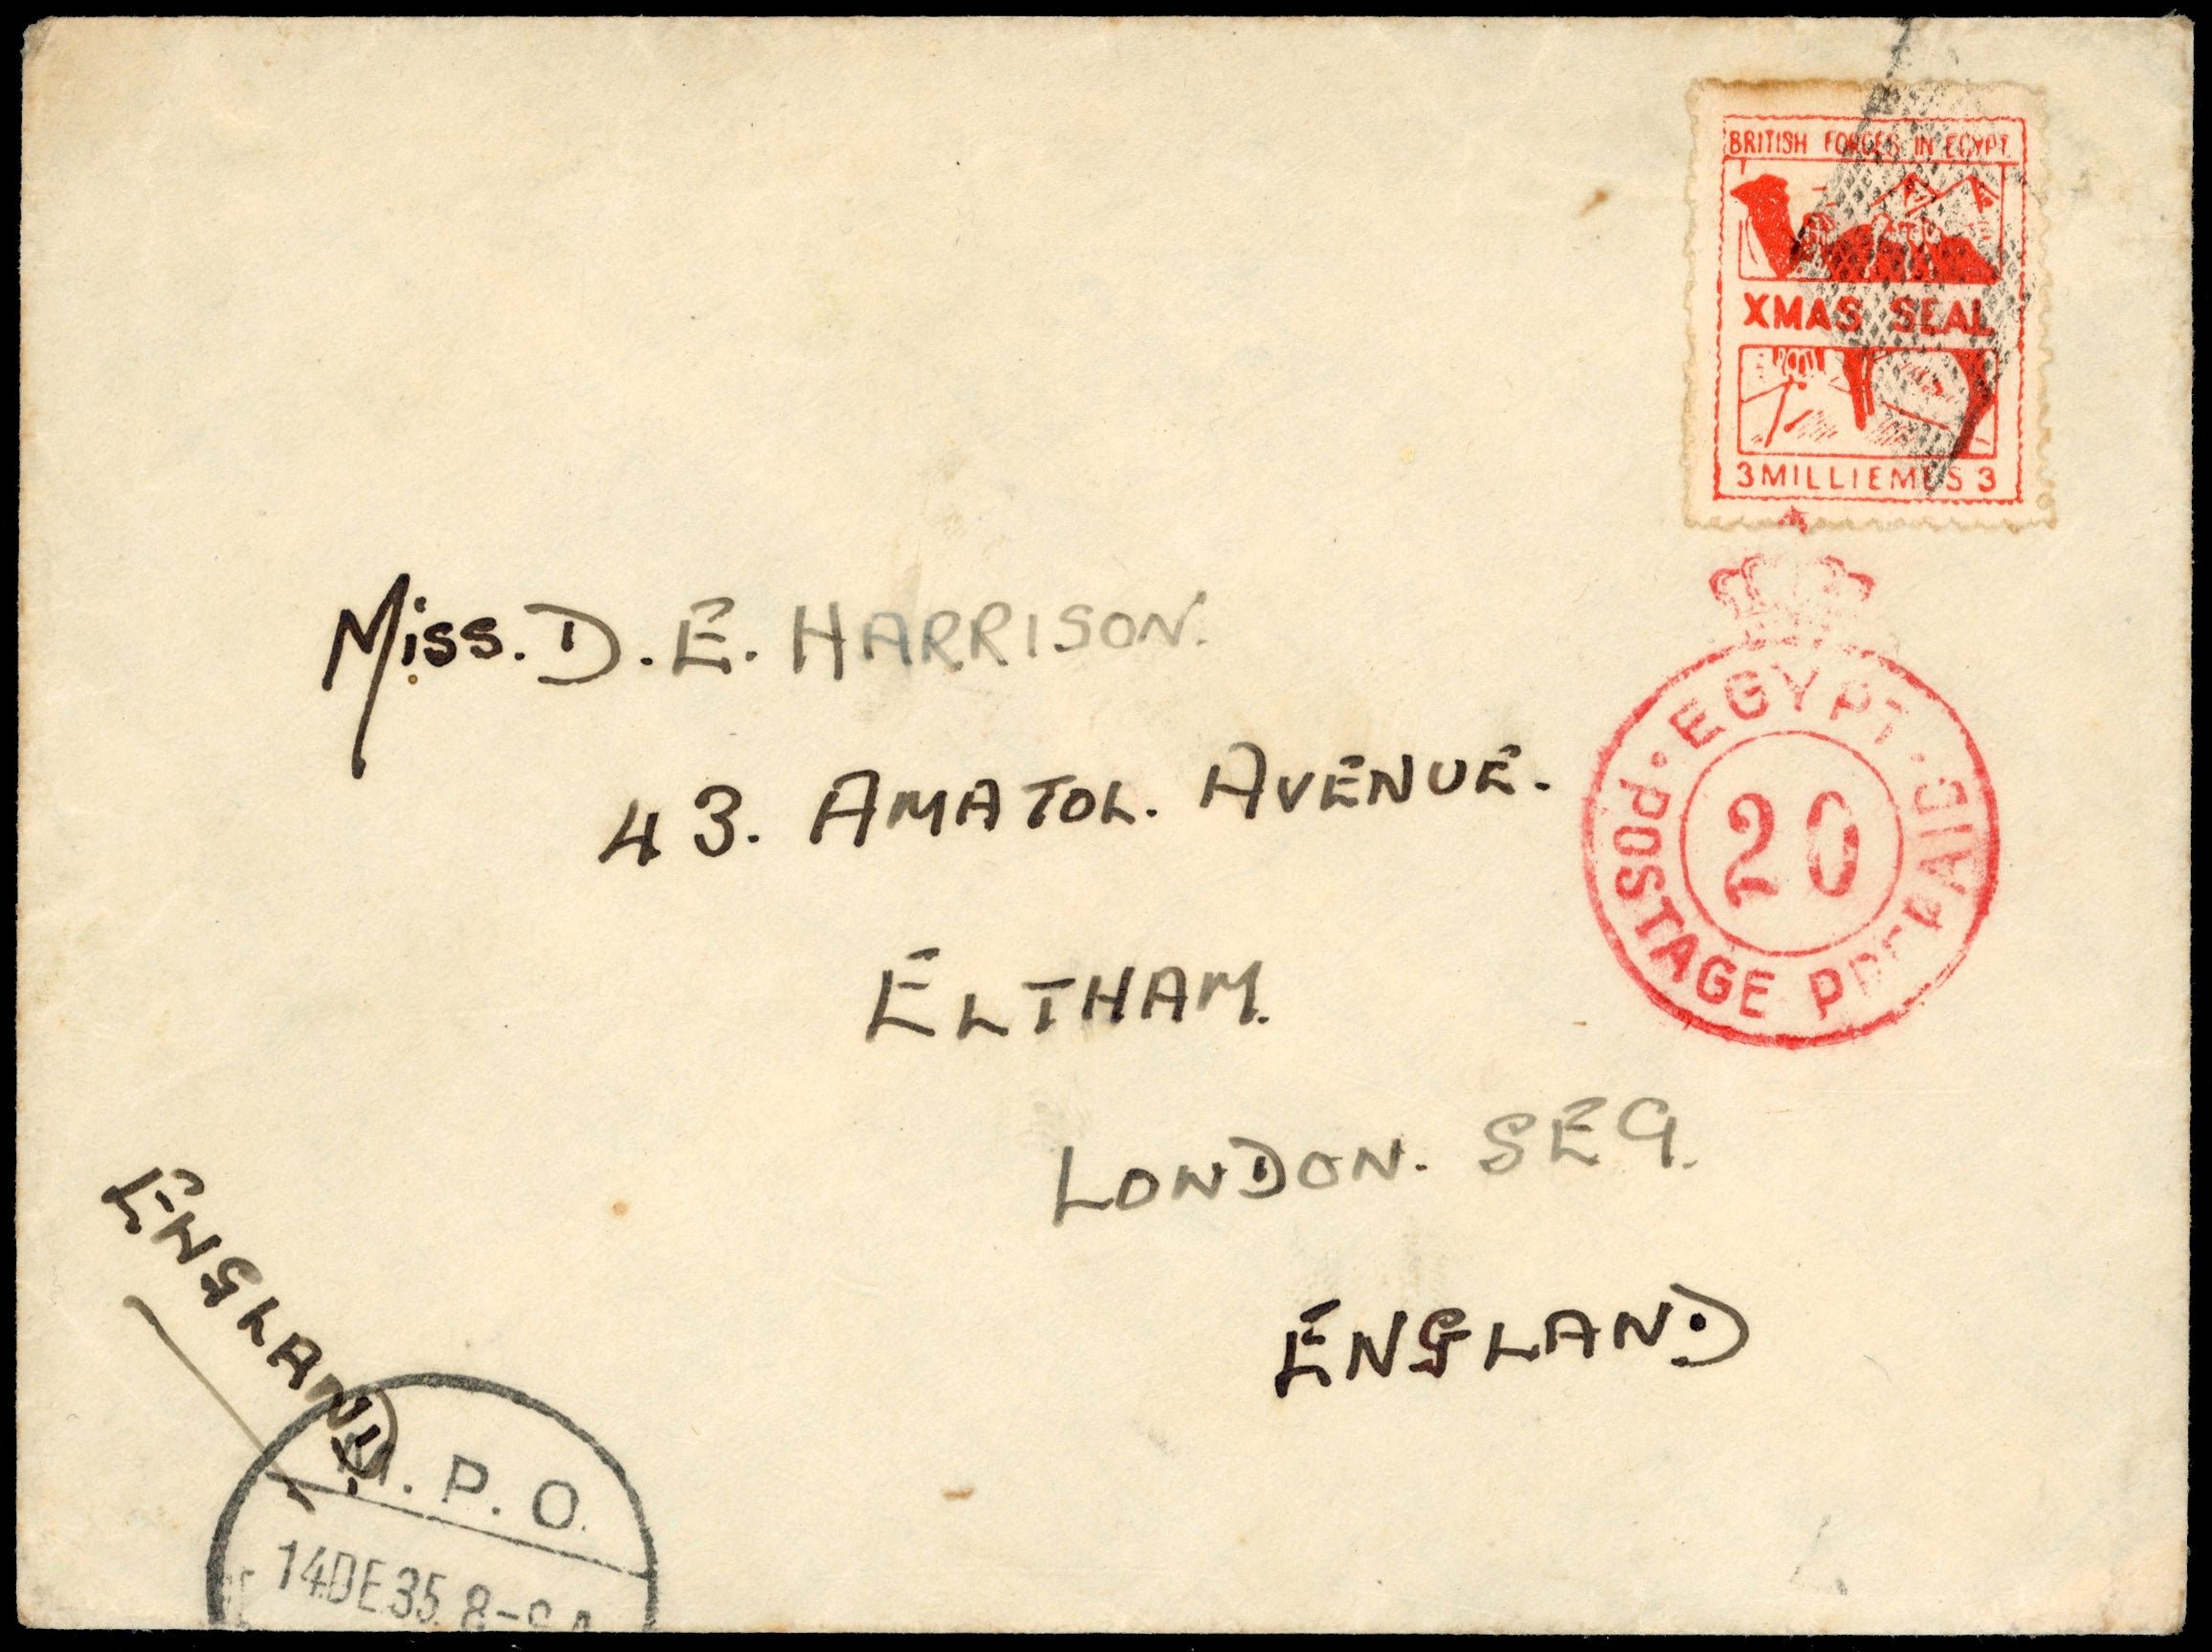 BRITISH FORCES IN EGYPT
XMAS SEAL
3 MILLIEMES 3
MISS. D. E. HARRISON.
43. AMATOL. AVENUE.
ELTHAM.
LONDON. SE9.
ENGLAND
EGYPT
POSTAGE PREPAID
20
ENGLAND
M.P.O.
14DE35.8-9A